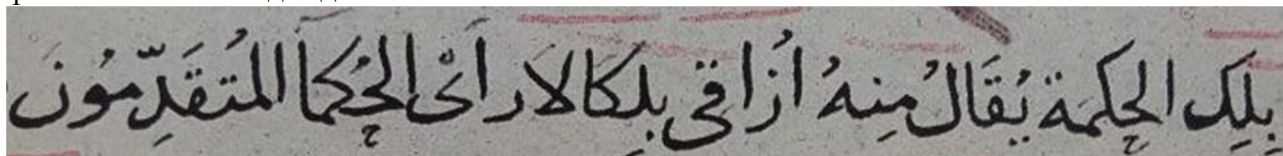 بِلِك الحِكمَة يُقَالُ مِنهُ اُزاقى بلكالار اَىْ الحُكمآ المُتَقَدِّمُونَ